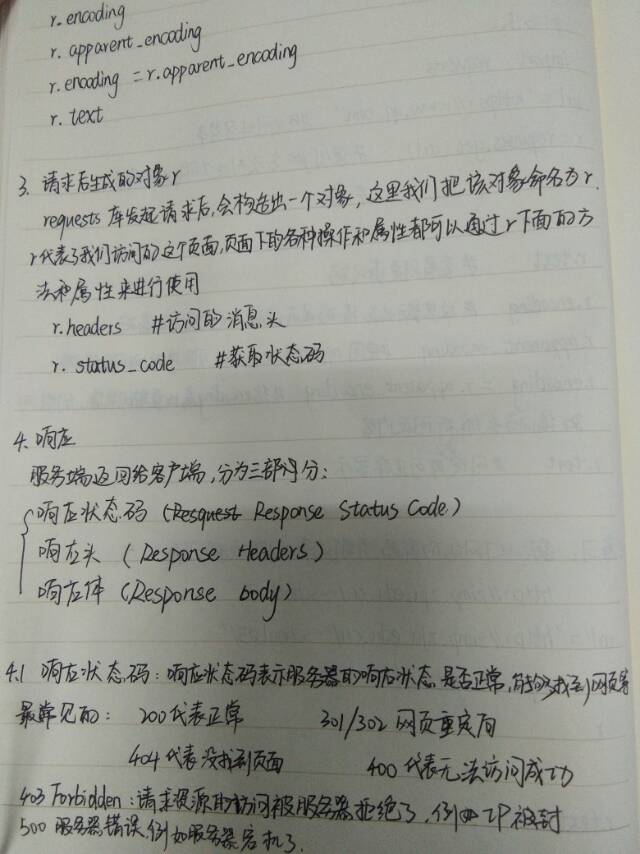 r.encoding
r.apparent_encoding
r.encoding = r.apparent_encoding
r.text
3. 请求后生成的对象r
requests 库发起请求后,会构造出一个对象,这里我们把该对象命名为r.
r代表了我们访问的这个页面,页面下的各种操作和属性都可以通过r下面的方
法和属性来进行使用
r.headers #访问的消息头
r.status_code #获取状态码
4. 响应
服务端返回给客户端,分为三部分:
响应状态码 (Response Status Code)
响应头 (Response Headers)
响应体 (Response body)
4.1 响应状态码:响应状态码表示服务器的响应状态,是否正常,能够找到网页等
最常见的: 200代表正常 301/302 网页重定向
404代表没找到页面 400代表无法访问成功
403 Forbidden:请求资源的访问被服务器拒绝了,例如IP被封
500 服务器错误,例如服务器宕机了.